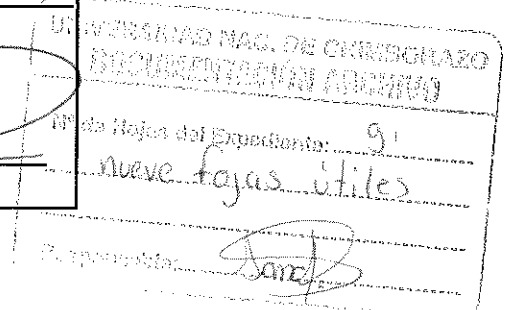 UNIVERSIDAD NAC. DE CHIMBORAZO
DOCUMENTACIÓN ARCHIVO
Nº de Hojas del Expediente: 9
nueve fojas útiles
Responsable: